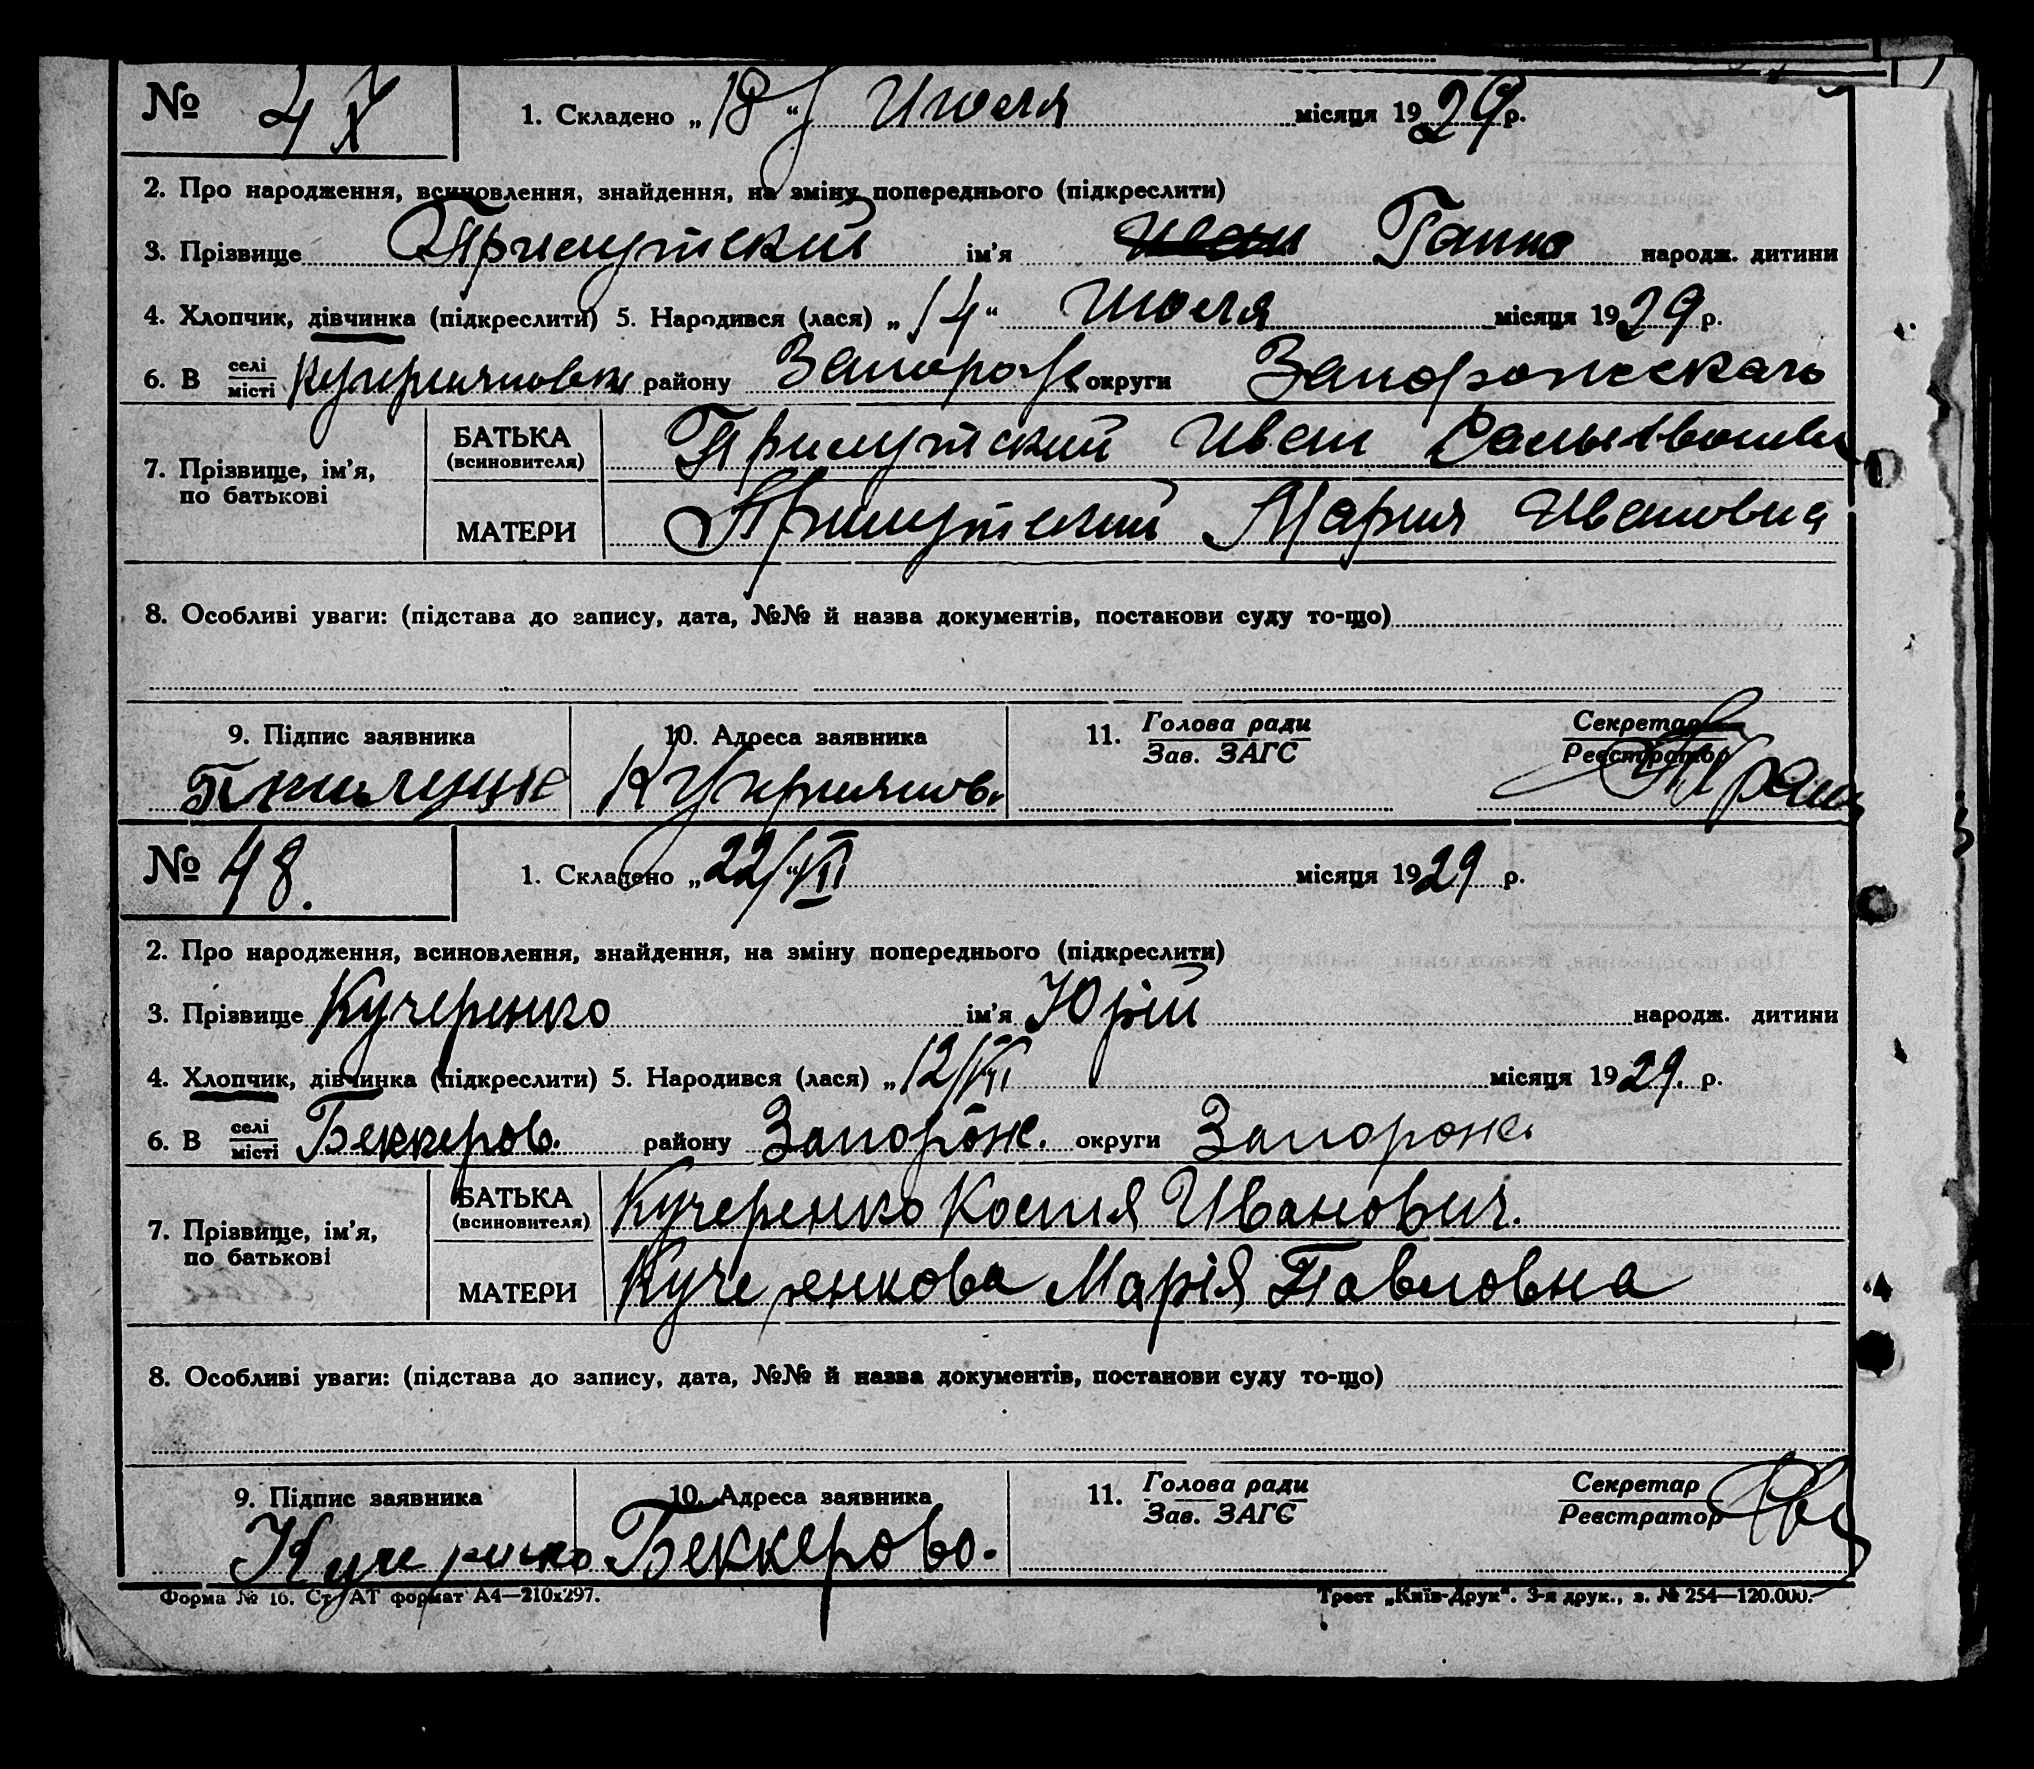 № 47 1. Складено „18“ Июля місяця 1929 р.
2. Про народження, всиновлення, знайдення, на зміну попереднього (підкреслити)
3. Прізвище ім'я Ганна народж. дитини
4. Хлопчик, дівчинка (підкреслити) 5. Народився (лася) „14“ Июля місяця 1929 р.
6. В селі
місті району Запорож округи Запорожскаго
7. Прізвище, ім'я,
по батькові
БАТЬКА
(всиновителя)
Иван
МАТЕРИ
Мария Ивановна
8. Особливі уваги: (підстава до запису, дата, №№ й назва документів, постанови суду то-що)
9. Підпис заявника 10. Адреса заявника 11. Голова ради
Зав. ЗАГС
Секретар
Реєстратор
№ 48. 1. Складено „22/“VII місяця 1929 р.
2. Про народження, всиновлення, знайдення, на зміну попереднього (підкреслити)
3. Прізвище Кучеренко ім'я Юрій народж. дитини
4. Хлопчик, дівчинка (підкреслити) 5. Народився (лася) „12/VII місяця 1929. р.
6. В селі
місті Беккеров. району Запорож. округи Запорож.
7. Прізвище, ім'я,
по батькові
БАТЬКА
(всиновителя)
Кучеренко Костя Иванович.
МАТЕРИ
Кучеренкова Марія Павловна
8. Особливі уваги: (підстава до запису, дата, №№ й назва документів, постанови суду то-що)
9. Підпис заявника 10. Адреса заявника 11. Голова ради
Зав. ЗАГС
Секретар
Реєстратор
Кучеренко Беккерово.
Форма № 16. Ст. АТ формат А4—210х297. Трест „Київ-Друк“. 3-я друк., з. № 254—120.000.